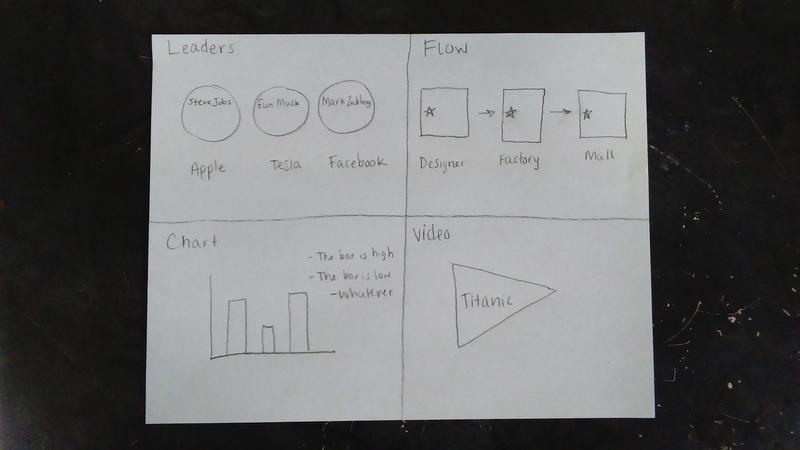 Leaders
Steve Jobs
Elun Musk
Mark Zuckberg
Apple
Tesla
Facebook
Flow
Designer
Factory
Mall
Chart
- The bar is high
- The bar is low
- whatever
Video
Titanic